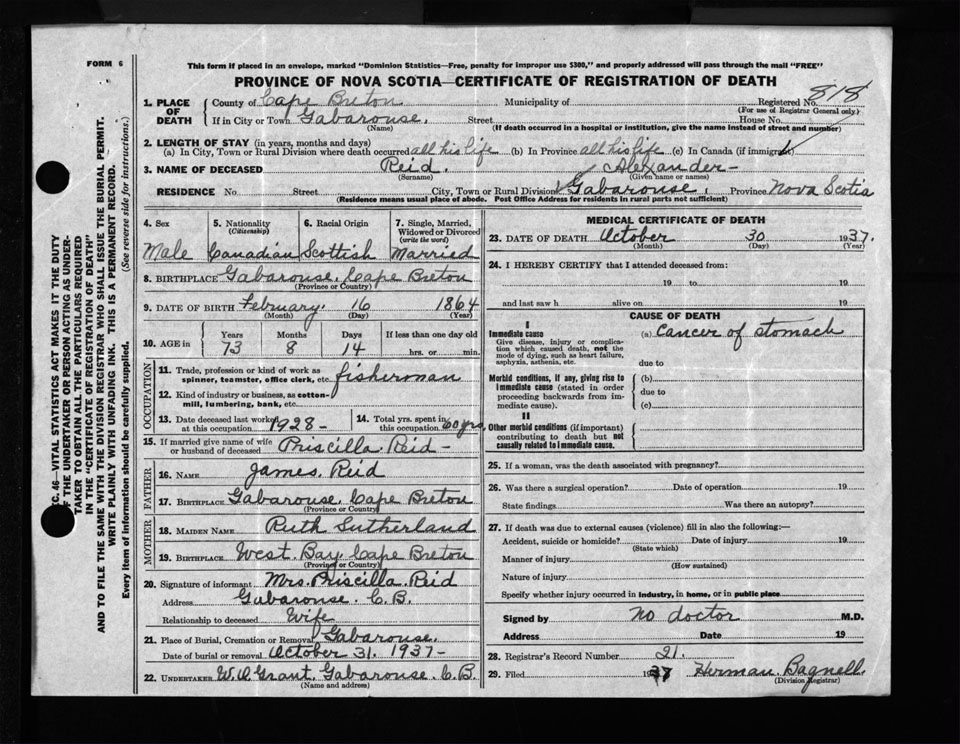 FORM 6
This form if placed in an envelope, marked "Dominion Statistics—Free, penalty for improper use $300," and properly addressed will pass through the mail "FREE"
PROVINCE OF NOVA SCOTIA—CERTIFICATE OF REGISTRATION OF DEATH
818
1. PLACE OF DEATH County of Cape Breton Municipality of Registered No.
(For use of Registrar General only.)
If in City or Town Gabarouse. Street House No.
(Name) (If death occurred in a hospital or institution, give the name instead of street and number)
2. LENGTH OF STAY (in years, months and days)
(a) In City, Town or Rural Division where death occurred all his life (b) In Province all his life (c) In Canada (if immigrant)
3. NAME OF DECEASED Reid, Alexander-
(Surname) (Given name or names)
RESIDENCE No. Street City, Town or Rural Division Gabarouse, Province Nova Scotia
(Residence means usual place of abode. Post Office Address for residents in rural parts not sufficient)
4. Sex
Male
5. Nationality
(Citizenship)
Canadian
6. Racial Origin
Scottish
7. Single, Married, Widowed or Divorced
(write the word)
Married
8. BIRTHPLACE Gabarouse, Cape Breton
(Province or Country)
9. DATE OF BIRTH February, 16 1864
(Month) (Day) (Year)
10. AGE in Years Months Days If less than one day old
73 8 14 hrs. or min.
OCCUPATION
11. Trade, profession or kind of work as
spinner, teamster, office clerk, etc. fisherman
12. Kind of industry or business, as cotton-
mill, lumbering, bank, etc.
13. Date deceased last worked
at this occupation 1928-
14. Total yrs. spent in
this occupation 60 yrs.
15. If married give name of wife
or husband of deceased Priscilla Reid-
FATHER
16. NAME James Reid
17. BIRTHPLACE Gabarouse, Cape Breton
(Province or Country)
MOTHER
18. MAIDEN NAME Ruth Sutherland
19. BIRTHPLACE West Bay Cape Breton
(Province or Country)
20. Signature of informant Mrs. Priscilla Reid
Address Gabarouse. C.B.
Relationship to deceased Wife
21. Place of Burial, Cremation or Removal Gabarouse.
Date of burial or removal October 31. 1937-
22. UNDERTAKER Gabarouse. C.B.
(Name and address)
MEDICAL CERTIFICATE OF DEATH
23. DATE OF DEATH October 30 1937.
(Month) (Day) (Year)
24. I HEREBY CERTIFY that I attended deceased from:
19 to 19
and last saw h alive on 19
CAUSE OF DEATH
I
Immediate cause (a) Cancer of stomach
Give disease, injury or complica-
tion which caused death, not the
mode of dying, such as heart failure,
asphyxia, asthenia, etc. due to
Morbid conditions, if any, giving rise to (b)
immediate cause (stated in order due to
proceeding backwards from im-
mediate cause). (c)
II
Other morbid conditions (if important)
contributing to death but not
causally related to immediate cause.
25. If a woman, was the death associated with pregnancy?
26. Was there a surgical operation? Date of operation 19
State findings Was there an autopsy?
27. If death was due to external causes (violence) fill in also the following:—
Accident, suicide or homicide? Date of injury 19
(State which)
Manner of injury
(How sustained)
Nature of injury
Specify whether injury occurred in industry, in home, or in public place
Signed by No doctor M.D.
Address Date 19
28. Registrar's Record Number 21.
29. Filed 1937 Herman. Bagnell
(Division Registrar)
SEC. 46—VITAL STATISTICS ACT MAKES IT THE DUTY
OF THE UNDERTAKER OR PERSON ACTING AS UNDER-
TAKER TO OBTAIN ALL THE PARTICULARS REQUIRED
IN THE "CERTIFICATE OF REGISTRATION OF DEATH"
AND TO FILE THE SAME WITH THE DIVISION REGISTRAR WHO SHALL ISSUE THE BURIAL PERMIT.
WRITE PLAINLY WITH UNFADING INK. THIS IS A PERMANENT RECORD.
Every item of information should be carefully supplied. (See reverse side for instructions.)